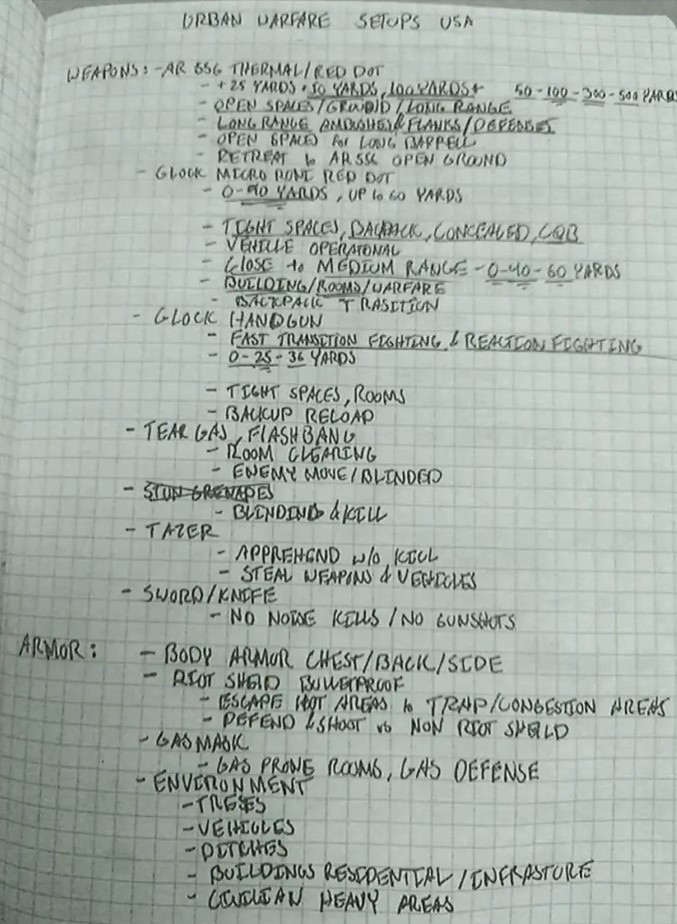 URBAN WARFARE SETUPS USA
WEAPONS: - AR 556 THERMAL/RED DOT
- + 25 YARDS + 50 YARDS, 100 YARDS+ 50-100-300-500 YARDS
- OPEN SPACES/GROUND/LONG RANGE
- LONG RANGE AMBUSHES & FLANKS/DEFENSES
- OPEN SPACES for LONG BARRELL
- RETREAT to AR556 OPEN GROUND
- GLOCK MICRO RONI RED DOT
- 0-40 YARDS, UP to 60 YARDS
- TIGHT SPACES, BACKPACK, CONCEALED, CQB
- VEHICLE OPERATONAL
- CLOSE to MEDIUM RANGE - 0-40-60 YARDS
- BUILDING/ROOMS/WARFARE
- BACKPACK TRASITION
- GLOCK HANDGUN
- FAST TRANSITION FIGHTING & REACTION FIGHTING
- 0-25-36 YARDS
- TIGHT SPACES, ROOMS
- BACKUP RELOAD
- TEAR GAS, FLASHBANG
- ROOM CLEARING
- ENEMY MOVE/BLINDED
- STUN GRENADES
- BLINDIND & KILL
- TAZER
- APPREHEND w/o KILL
- STEAL WEAPONS & VEHICLES
- SWORD/KNIFE
- NO NOISE KILLS / NO GUNSHOTS
ARMOR: - BODY ARMOR CHEST/BACK/SIDE
- RIOT SHEILD BULLETPROOF
- ESCAPE HOT AREAS to TRAP/CONGESTION AREAS
- DEFEND & SHOOT vs NON RIOT SHEILD
- GAS MASK
- GAS PRONE ROOMS, GAS DEFENSE
- ENVIRONMENT
- TREES
- VEHICLES
- DITCHES
- BUILDINGS RESIDENTIAL/INFRASTURE
- CIVILIAN HEAVY AREAS